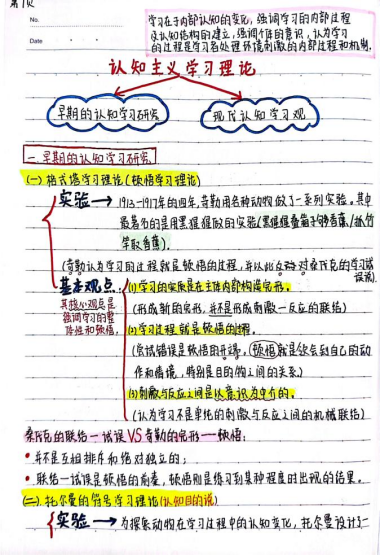 第1页
No.
Date
学习在于内部认知的变化，强调学习的内部过程
及认知结构的建立，强调个体的意识，认为学习
的过程是学习者处理环境刺激的内部过程和机制。
认知主义学习理论
早期的认知学习研究
现代认知学习观
一、早期的认知学习研究
(一) 格式塔学习理论(顿悟学习理论)
实验→1913-1917年的四年，苛勒用各种动物做了一系列实验。其中
最著名的是用黑猩猩做的实验(黑猩猩叠箱子够香蕉/抓竹
竿取香蕉)。
(苛勒认为学习的过程就是顿悟的过程，并以此反对桑代克的学习试
误说)
基本观点
其核心观点是
强调学习的整
体性和顿悟。
(1)学习的实质是在主体内部构造完形。
(形成新的完形，并不是形成刺激—反应的联结)
(2)学习过程就是顿悟的过程。
(尝试错误是顿悟的开端，顿悟就是领会到自己的动
作和情境，特别是目的物之间的关系。)
(3)刺激与反应之间是以意识为中介的。
(认为学习不是单纯的刺激与反应之间的机械联结)
桑代克的联结—试误VS苛勒的完形—顿悟：
• 并不是互相排斥和绝对独立的；
• 联结—试误是顿悟的前奏，顿悟则是练习到某种程度时出现的结果。
(二) 托尔曼的符号学习理论(认知目的说)
实验→为探索动物在学习过程中的认知变化，托尔曼设计了一